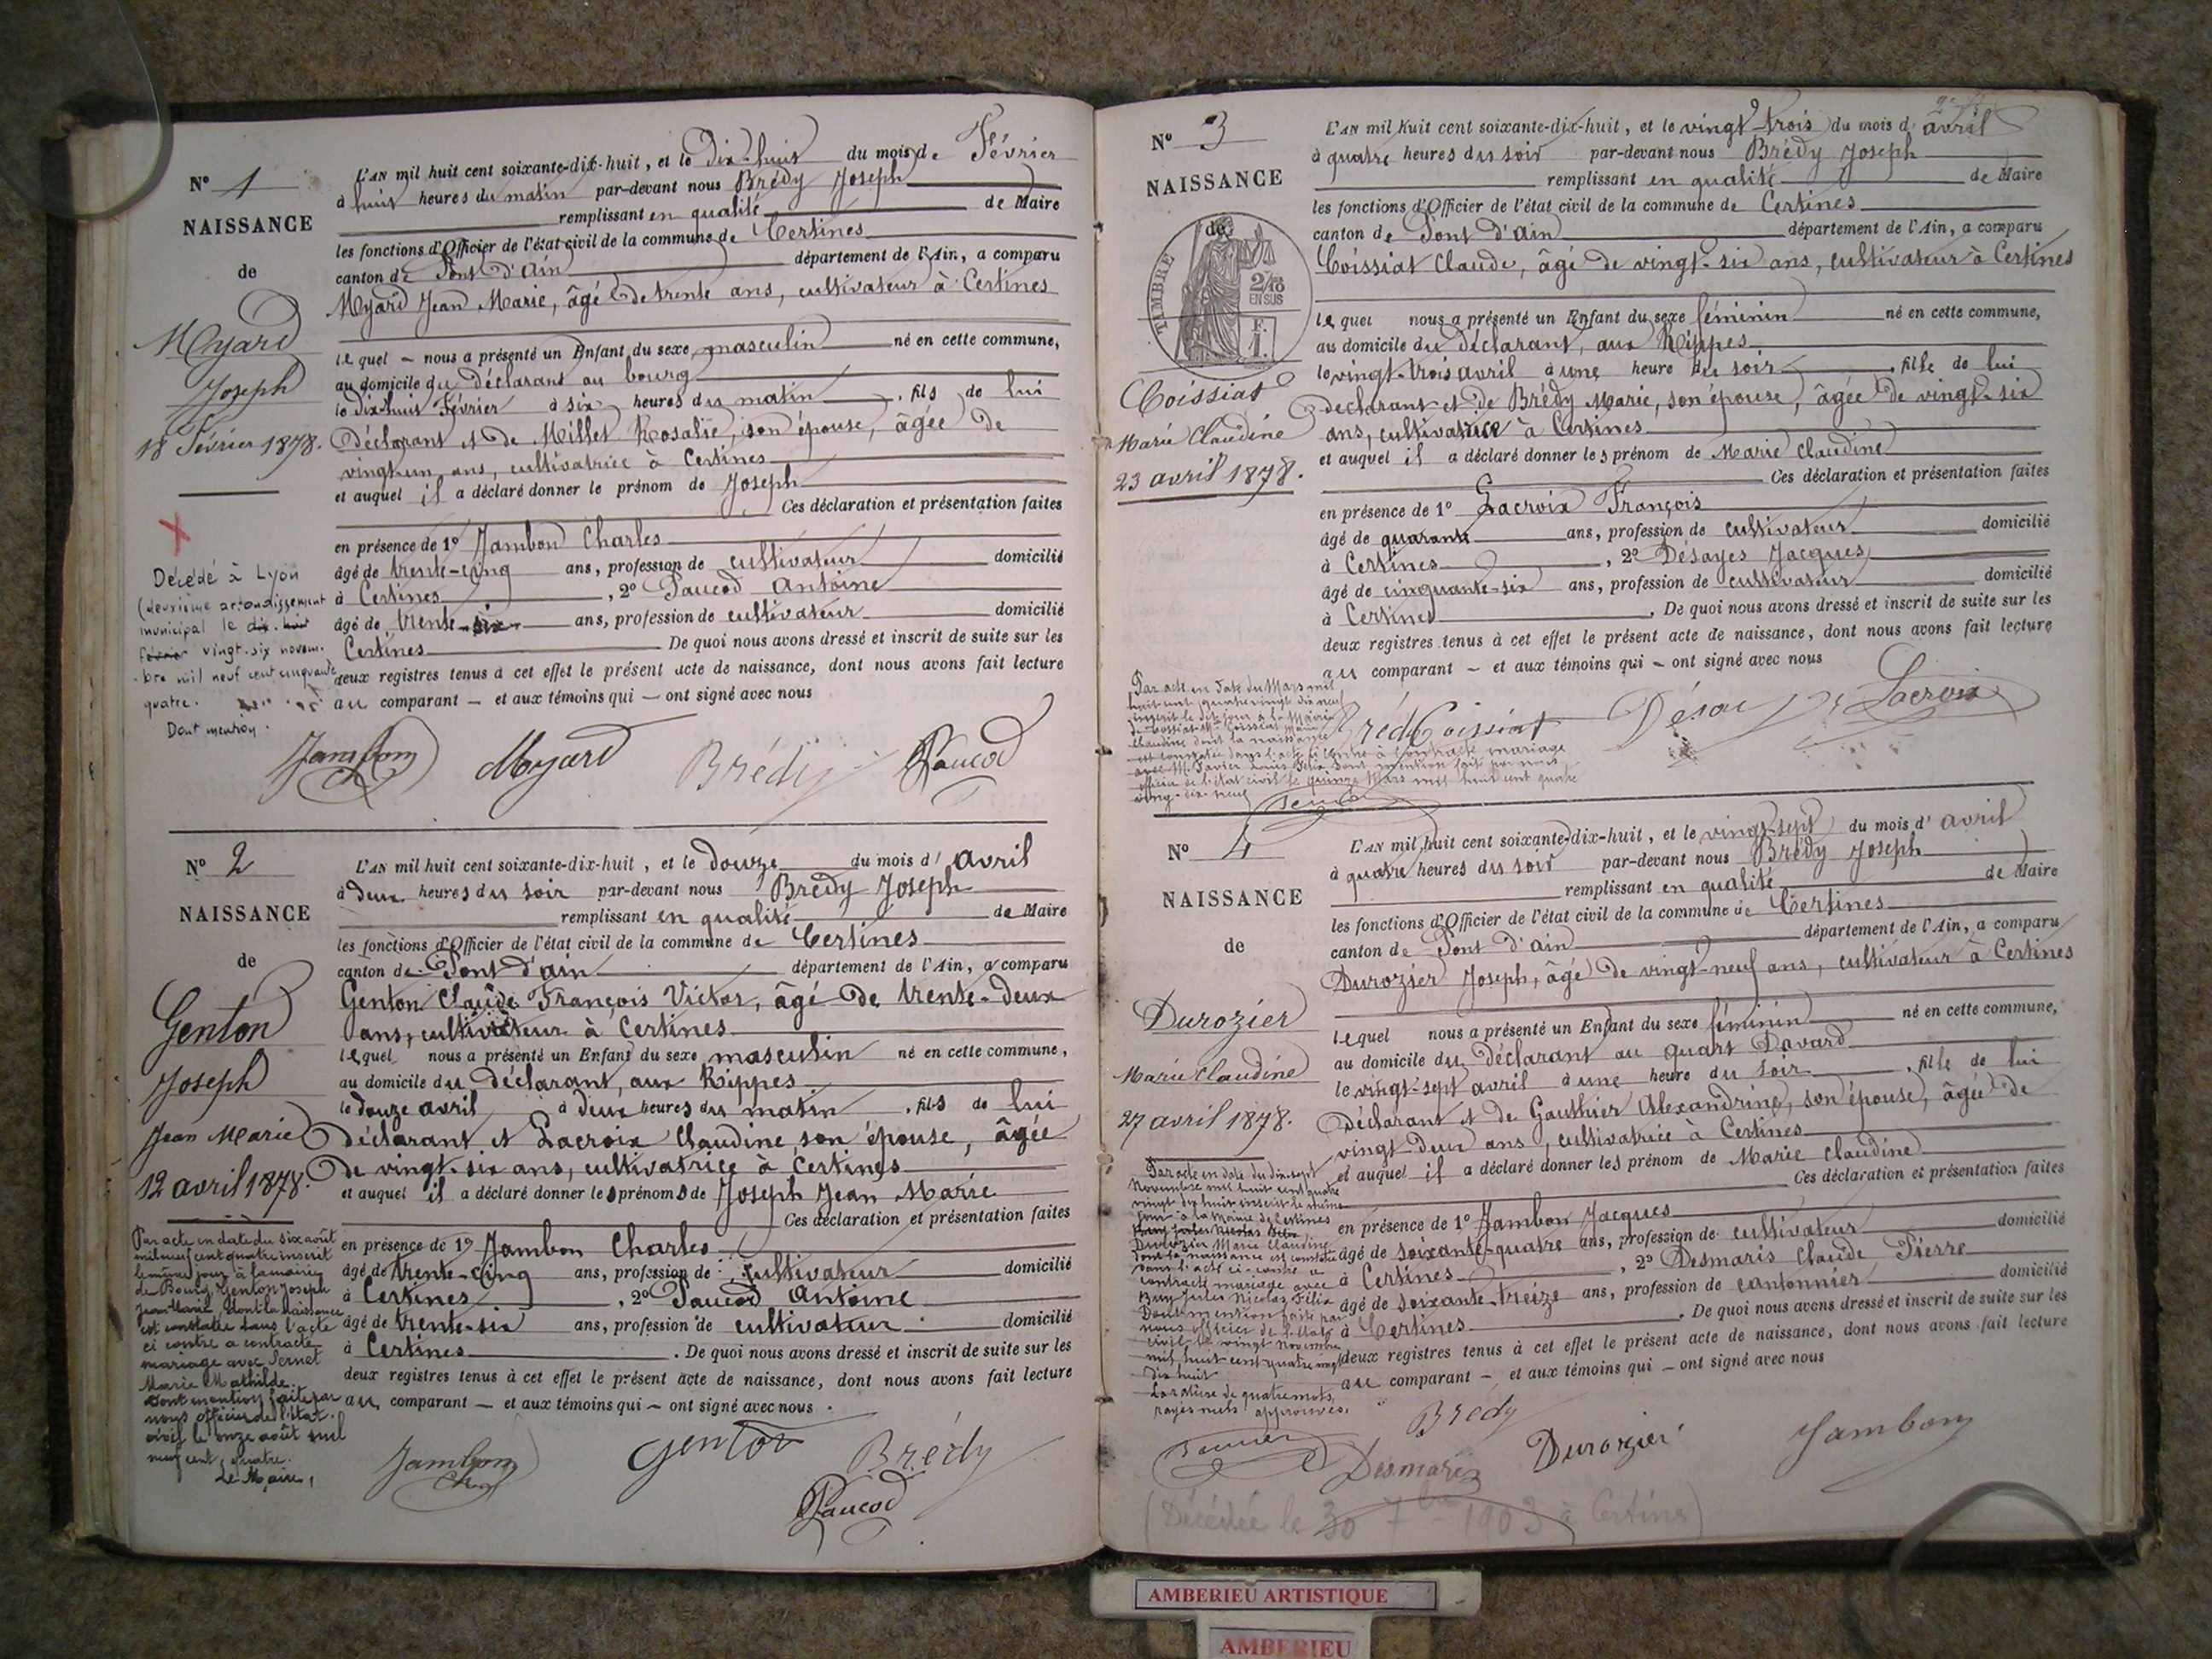 Nº 1
NAISSANCE
de
Myard
Joseph
18 Février 1878.
Décédé à Lyon
(deuxième arrondissement
municipal le dix-huit
février vingt-six novem-
bre mil neuf cent cinquante
quatre.
Dont mention.
L'AN mil huit cent soixante-dix-huit, et le Dix-huit du mois de Février
à huit heures du matin par-devant nous Brédy Joseph
remplissant en qualité de Maire
les fonctions d'Officier de l'état civil de la commune de Certines
canton de Pont d'Ain département de l'Ain, a comparu
Myard Jean Marie, âgé de trente ans, cultivateur à Certines
lequel — nous a présenté un Enfant du sexe masculin né en cette commune,
au domicile du Déclarant au bourg
le dix-huit Février à six heures du matin, fils de lui
Déclarant et de Millet Rosalie, son épouse, âgée de
vingt-un ans, cultivatrice à Certines
et auquel il a déclaré donner le prénom de Joseph
Ces déclaration et présentation faites
en présence de 1º Jambon Charles
âgé de trente-cinq ans, profession de cultivateur domicilié
à Certines, 2º Paucod Antoine
âgé de trente-six ans, profession de cultivateur domicilié
Certines De quoi nous avons dressé et inscrit de suite sur les
deux registres tenus à cet effet le présent acte de naissance, dont nous avons fait lecture
au comparant — et aux témoins qui — ont signé avec nous
Jambon Myard Brédy Paucod
Nº 2
NAISSANCE
de
Genton
Joseph
Jean Marie
12 avril 1878.
Par acte en date du six août
mil neuf cent quatre inscrit
le même jour à la mairie
de Bourg, Genton Joseph
Jean Marie, dont la naissance
est constatée dans l'acte
ci contre a contracté
mariage avec Pernet
Marie Mathilde.
Dont mention faite par
nous officier de l'état
civil le onze août mil
neuf cent quatre.
Le Maire,
L'AN mil huit cent soixante-dix-huit, et le douze du mois d' avril
à deux heures du soir par-devant nous Brédy Joseph
remplissant en qualité de Maire
les fonctions d'Officier de l'état civil de la commune de Certines
canton de Pont d'ain département de l'Ain, a comparu
Genton Claude François Victor, âgé de trente-deux
ans, cultivateur à Certines
lequel nous a présenté un Enfant du sexe masculin né en cette commune,
au domicile du Déclarant, aux Rippes
le douze avril à deux heures du matin, fils de lui
déclarant et Lacroix Claudine son épouse, âgée
de vingt-six ans, cultivatrice à Certines
et auquel il a déclaré donner les prénoms de Joseph Jean Marie
Ces déclaration et présentation faites
en présence de 1º Jambon Charles
âgé de trente-cinq ans, profession de cultivateur domicilié
à Certines, 2º Paucod Antoine
âgé de trente-six ans, profession de cultivateur domicilié
à Certines. De quoi nous avons dressé et inscrit de suite sur les
deux registres tenus à cet effet le présent acte de naissance, dont nous avons fait lecture
au comparant — et aux témoins qui — ont signé avec nous.
Jambon Genton Brédy
Paucod
Nº 3
NAISSANCE
de
TIMBRE
2/10
EN SUS
F.
1.
Coissiat
Marie Claudine
23 avril 1878.
L'AN mil huit cent soixante-dix-huit, et le vingt-trois du mois d' avril
à quatre heures du soir par-devant nous Brédy Joseph
remplissant en qualité de Maire
les fonctions d'Officier de l'état civil de la commune de Certines
canton de Pont d'ain département de l'Ain, a comparu
Coissiat Claude, âgé de vingt-six ans, cultivateur à Certines
lequel nous a présenté un Enfant du sexe féminin né en cette commune,
au domicile du Déclarant, aux Rippes
le vingt-trois avril à une heure du soir, fille de lui
declarant et de Brédy Marie, son épouse, âgée de vingt-six
ans, cultivatrice à Certines
et auquel il a déclaré donner les prénom de Marie Claudine
Ces déclaration et présentation faites
en présence de 1º Lacroix François
âgé de quarante ans, profession de cultivateur domicilié
à Certines, 2º Désayes Jacques
âgé de cinquante-six ans, profession de cultivateur domicilié
à Certines. De quoi nous avons dressé et inscrit de suite sur les
deux registres tenus à cet effet le présent acte de naissance, dont nous avons fait lecture
au comparant — et aux témoins qui — ont signé avec nous
Par acte en date du Mars mil
huit cent quatre vingt dix neuf
inscrit le dit jour à la Mairie
Coissiat Marie
Claudine dont la naissance
est constatée dans l'acte ci contre à contracté mariage
avec Mr Louis Félix Dont mention faite par nous
officier de l'état civil le quinze Mars mil huit cent quatre
vingt-dix-neuf
Bréd Coissiat Lacroix
Nº 4
NAISSANCE
de
Durozier
Marie Claudine
27 avril 1878.
Par acte en date du dix sept
Novembre mil huit cent quatre
vingt dix huit inscrit le même
jour à la Mairie de Certines
Durozier Marie Claudine
dont la naissance est constatée
dans l'acte ci-contre a
contracté mariage avec
Buy Jules Nicolas Félix
Dont mention faite par
nous officier de l'état
civil le vingt Novembre
mil huit cent quatre vingt
dix huit
La rature de quatre mots
rayés nuls approuvés.
L'AN mil huit cent soixante-dix-huit, et le vingt-sept du mois d' avril
à quatre heures du soir par-devant nous Brédy Joseph
remplissant en qualité de Maire
les fonctions d'Officier de l'état civil de la commune de Certines
canton de Pont d'ain département de l'Ain, a comparu
Durozier Joseph, âgé de vingt-neuf ans, cultivateur à Certines
lequel nous a présenté un Enfant du sexe féminin né en cette commune,
au domicile du Déclarant au quart Davard
le vingt-sept avril à une heure du soir, fille de lui
Déclarant et de Gauthier Alexandrine, son épouse, âgée de
vingt-deux ans, cultivatrice à Certines
et auquel il a déclaré donner les prénom de Marie Claudine
Ces déclaration et présentation faites
en présence de 1º Jambon Jacques
âgé de soixante-quatre ans, profession de cultivateur domicilié
à Certines, 2º Desmaris Claude Pierre
âgé de soixante-treize ans, profession de cantonnier domicilié
à Certines. De quoi nous avons dressé et inscrit de suite sur les
deux registres tenus à cet effet le présent acte de naissance, dont nous avons fait lecture
au comparant — et aux témoins qui — ont signé avec nous
Brédy
Desmaris Durozier Jambon
(Décédée le 30 7bre 1903 à Certines)
AMBERIEU ARTISTIQUE
AMBERIEU